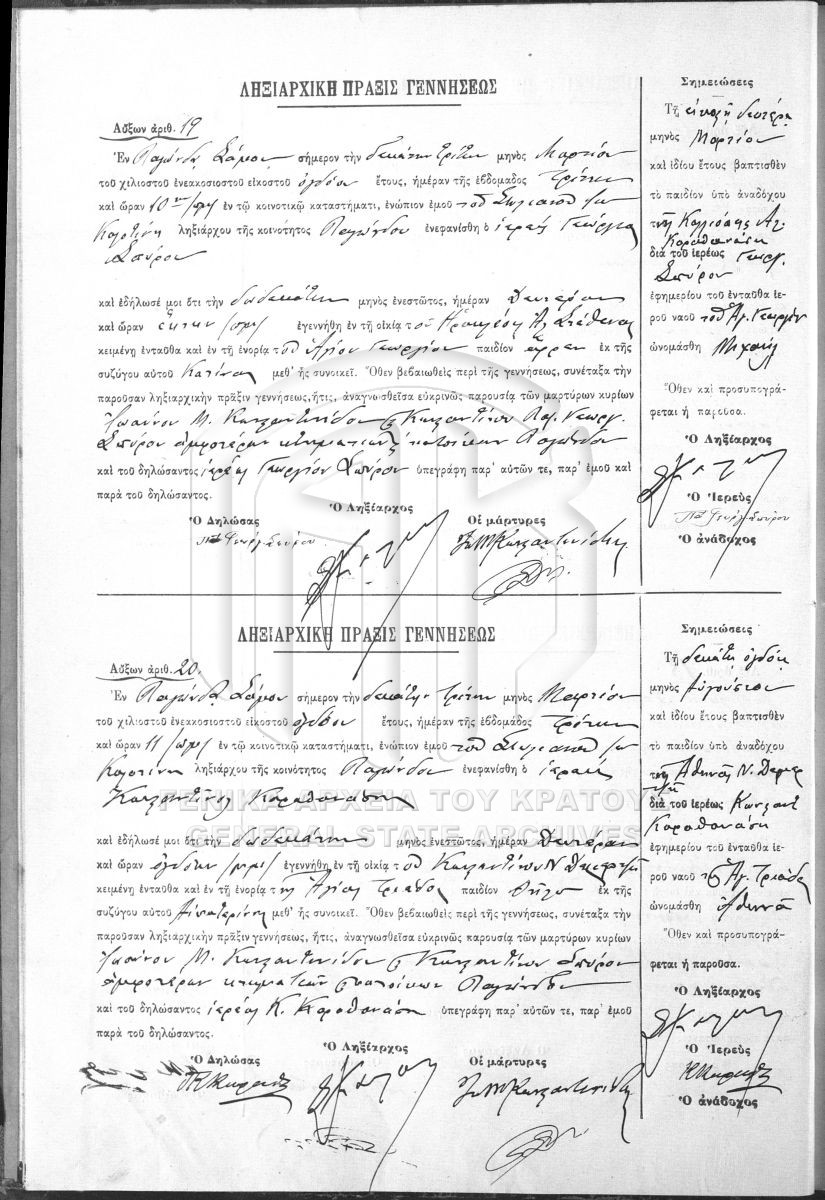 ΛΗΞΙΑΡΧΙΚΗ ΠΡΑΞΙΣ ΓΕΝΝΗΣΕΩΣ
Αὔξων ἀριθ. 19
Ἐν Παγώνδᾳ Σάμου σήμερον τὴν δεκάτην τρίτην μηνὸς Μαρτίου
τοῦ χιλιοστοῦ ἐνεακοσιοστοῦ εἰκοστοῦ ὀγδόου ἔτους, ἡμέραν τῆς ἑβδομάδος Τρίτην
καὶ ὥραν 10 ην π/μ ἐν τῷ κοινοτικῷ καταστήματι, ἐνώπιον ἐμοῦ τοῦ Στυλιανοῦ
ληξιάρχου τῆς κοινότητος Παγώνδου ἐνεφανίσθη ὁ ἱερεὺς Γεώργιος
Σπύρου
καὶ ἐδήλωσέ μοι ὅτι τὴν δωδεκάτην μηνὸς ἐνεστῶτος, ἡμέραν Δευτέραν
καὶ ὥραν ἕκτην π/μ ἐγεννήθη ἐν τῇ οἰκίᾳ τοῦ Ἡρακλέους Αλ.
κειμένη ἐνταῦθα καὶ ἐν τῇ ἐνορίᾳ τοῦ Ἁγίου Γεωργίου παιδίον ἄρρεν ἐκ τῆς
συζύγου αὐτοῦ Κατίνας μεθ' ἧς συνοικεῖ. Ὅθεν βεβαιωθεὶς περὶ τῆς γεννήσεως, συνέταξα τὴν
παροῦσαν ληξιαρχικὴν πρᾶξιν γεννήσεως, ἥτις, ἀναγνωσθεῖσα εὐκρινῶς παρουσίᾳ τῶν μαρτύρων κυρίων
Ἰωάννου Μ. Κωνσταντινίδου Κωνσταντίνου Γεωργ.
Σπύρου ἀμφοτέρων κτηματιῶν κατοίκων Παγώνδου
καὶ τοῦ δηλώσαντος ἱερέως Γεωργίου Σπύρου ὑπεγράφη παρ' αὐτῶν τε, παρ' ἐμοῦ καὶ
παρὰ τοῦ δηλώσαντος.
Ὁ Δηλώσας Ὁ Ληξίαρχος Οἱ μάρτυρες
Σημειώσεις
Τῇ εἰκοστῇ δευτέρᾳ
μηνὸς Μαρτίου
καὶ ἰδίου ἔτους βαπτισθὲν
τὸ παιδίον ὑπὸ ἀναδόχου
τῆς Καλλιόπης Αλ.
Καραθανάση
διὰ τοῦ ἱερέως Γεωργ.
Σπύρου
ἐφημερίου τοῦ ἐνταῦθα ἱε-
ροῦ ναοῦ τοῦ Ἁγ. Γεωργίου
ὠνομάσθη Μιχαὴλ
Ὅθεν καὶ προσυπογρά-
φεται ἡ παροῦσα.
Ὁ Ληξίαρχος
Ὁ Ἱερεὺς
Ὁ ἀνάδοχος
ΛΗΞΙΑΡΧΙΚΗ ΠΡΑΞΙΣ ΓΕΝΝΗΣΕΩΣ
Αὔξων ἀριθ. 20.
Ἐν Παγώνδᾳ Σάμου σήμερον τὴν δεκάτην τρίτην μηνὸς Μαρτίου
τοῦ χιλιοστοῦ ἐνεακοσιοστοῦ εἰκοστοῦ ὀγδόου ἔτους, ἡμέραν τῆς ἑβδομάδος Τρίτην
καὶ ὥραν 11 π/μ ἐν τῷ κοινοτικῷ καταστήματι, ἐνώπιον ἐμοῦ τοῦ Στυλιανοῦ
ληξιάρχου τῆς κοινότητος Παγώνδου ἐνεφανίσθη ὁ ἱερεὺς
Κωνσταντῖνος Καραθανάσης
καὶ ἐδήλωσέ μοι ὅτι τὴν δωδεκάτην μηνὸς ἐνεστῶτος, ἡμέραν Δευτέραν
καὶ ὥραν ὀγδόην ἐγεννήθη ἐν τῇ οἰκίᾳ τοῦ Κωνσταντίνου Ν.
κειμένη ἐνταῦθα καὶ ἐν τῇ ἐνορίᾳ τῆς Ἁγίας Τριάδος παιδίον θῆλυ ἐκ τῆς
συζύγου αὐτοῦ Αἰκατερίνης μεθ' ἧς συνοικεῖ. Ὅθεν βεβαιωθεὶς περὶ τῆς γεννήσεως, συνέταξα τὴν
παροῦσαν ληξιαρχικὴν πρᾶξιν γεννήσεως, ἥτις, ἀναγνωσθεῖσα εὐκρινῶς παρουσίᾳ τῶν μαρτύρων κυρίων
Ἰωάννου Μ. Κωνσταντινίδου Κωνσταντίνου Σπύρου
ἀμφοτέρων κτηματιῶν κατοίκων Παγώνδου
καὶ τοῦ δηλώσαντος ἱερέως Κ. Καραθανάση ὑπεγράφη παρ' αὐτῶν τε, παρ' ἐμοῦ
παρὰ τοῦ δηλώσαντος.
Ὁ Δηλώσας Ὁ Ληξίαρχος Οἱ μάρτυρες
Σημειώσεις
Τῇ δεκάτῃ ὀγδόῃ
μηνὸς Αὐγούστου
καὶ ἰδίου ἔτους βαπτισθὲν
τὸ παιδίον ὑπὸ ἀναδόχου
τῆς Ἀθηνᾶς Ν.
διὰ τοῦ ἱερέως Κωνσταντ
Καραθανάση
ἐφημερίου τοῦ ἐνταῦθα ἱε-
ροῦ ναοῦ τῆς Ἁγ. Τριάδος
ὠνομάσθη Ἀθηνᾶ
Ὅθεν καὶ προσυπογρά-
φεται ἡ παροῦσα.
Ὁ Ληξίαρχος
Ὁ Ἱερεὺς
Ὁ ἀνάδοχος
ΓΕΝΙΚΑ ΑΡΧΕΙΑ ΤΟΥ ΚΡΑΤΟΥΣ
GENERAL STATE ARCHIVES